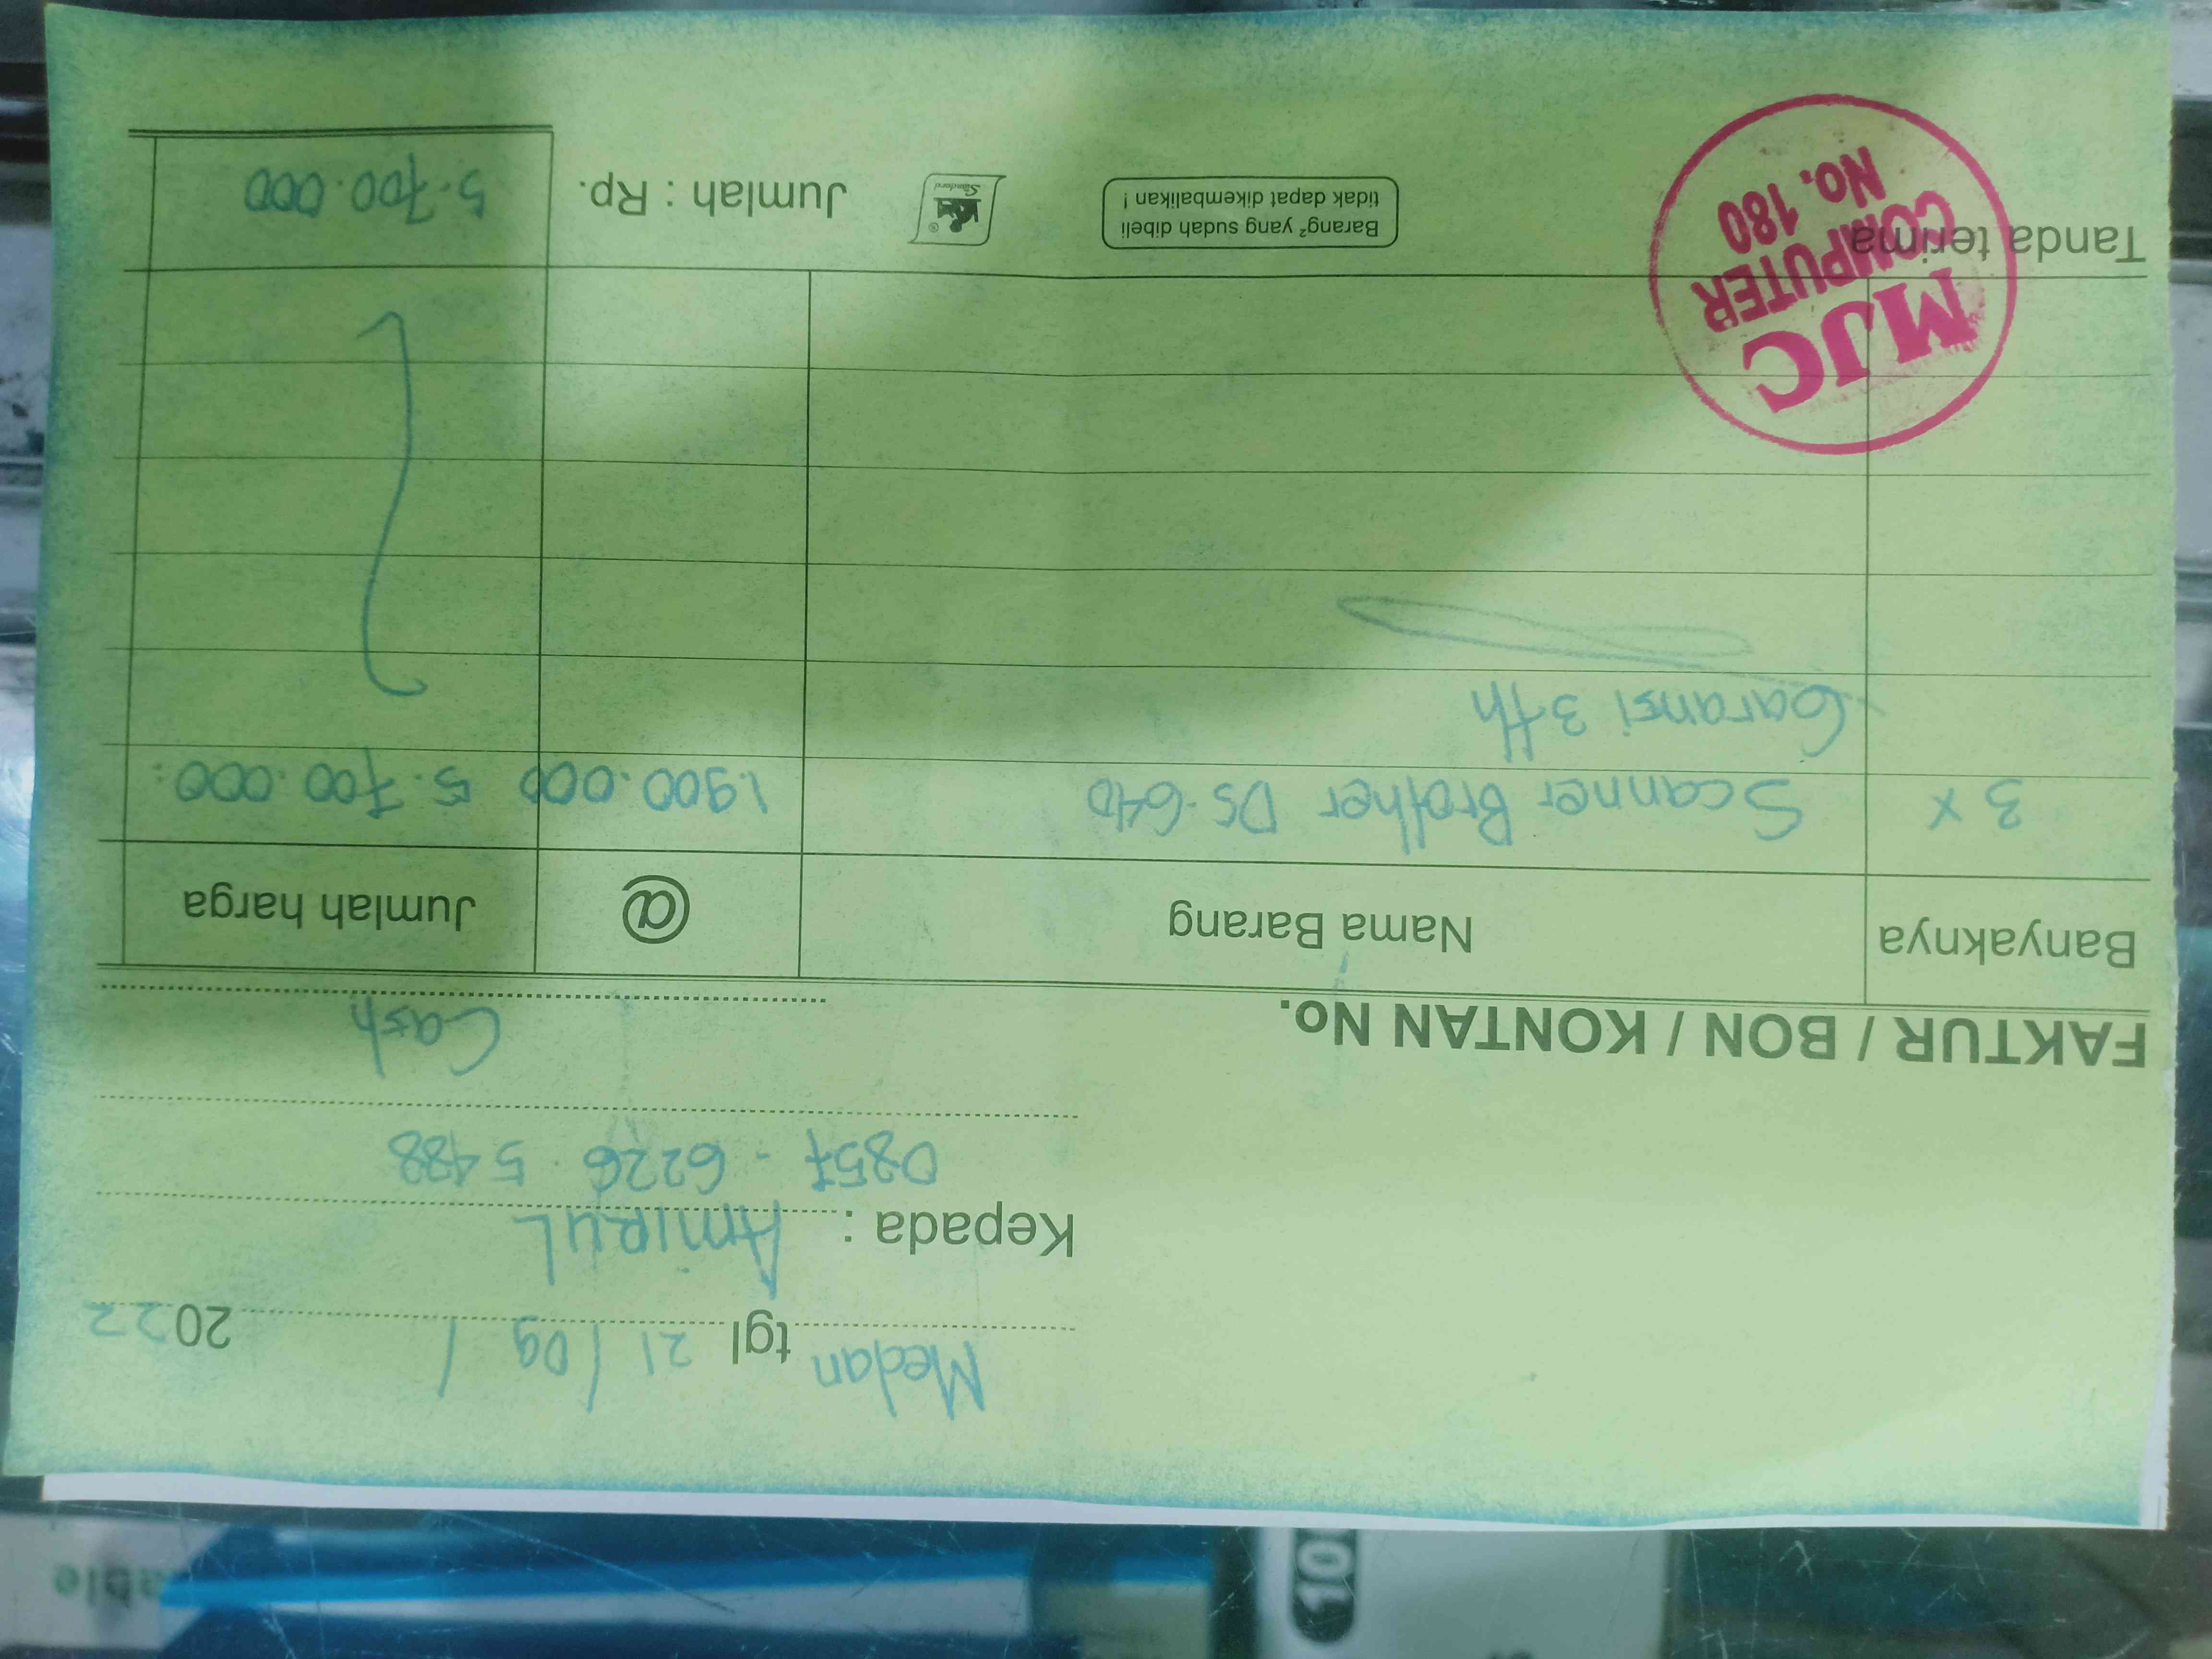 Medan tgl 21 / 09 / 2022
Kepada : AMIRUL
0857 - 6226 5488
Cash
FAKTUR / BON / KONTAN No.
Banyaknya Nama Barang @ Jumlah harga
3 x Scanner Brother DS-640 1.900.000 5.700.000
Garansi 3 th
Tanda terima
Barang² yang sudah dibeli
tidak dapat dikembalikan !
Jumlah : Rp. 5.700.000
MJC
COMPUTER
No. 180
able
10